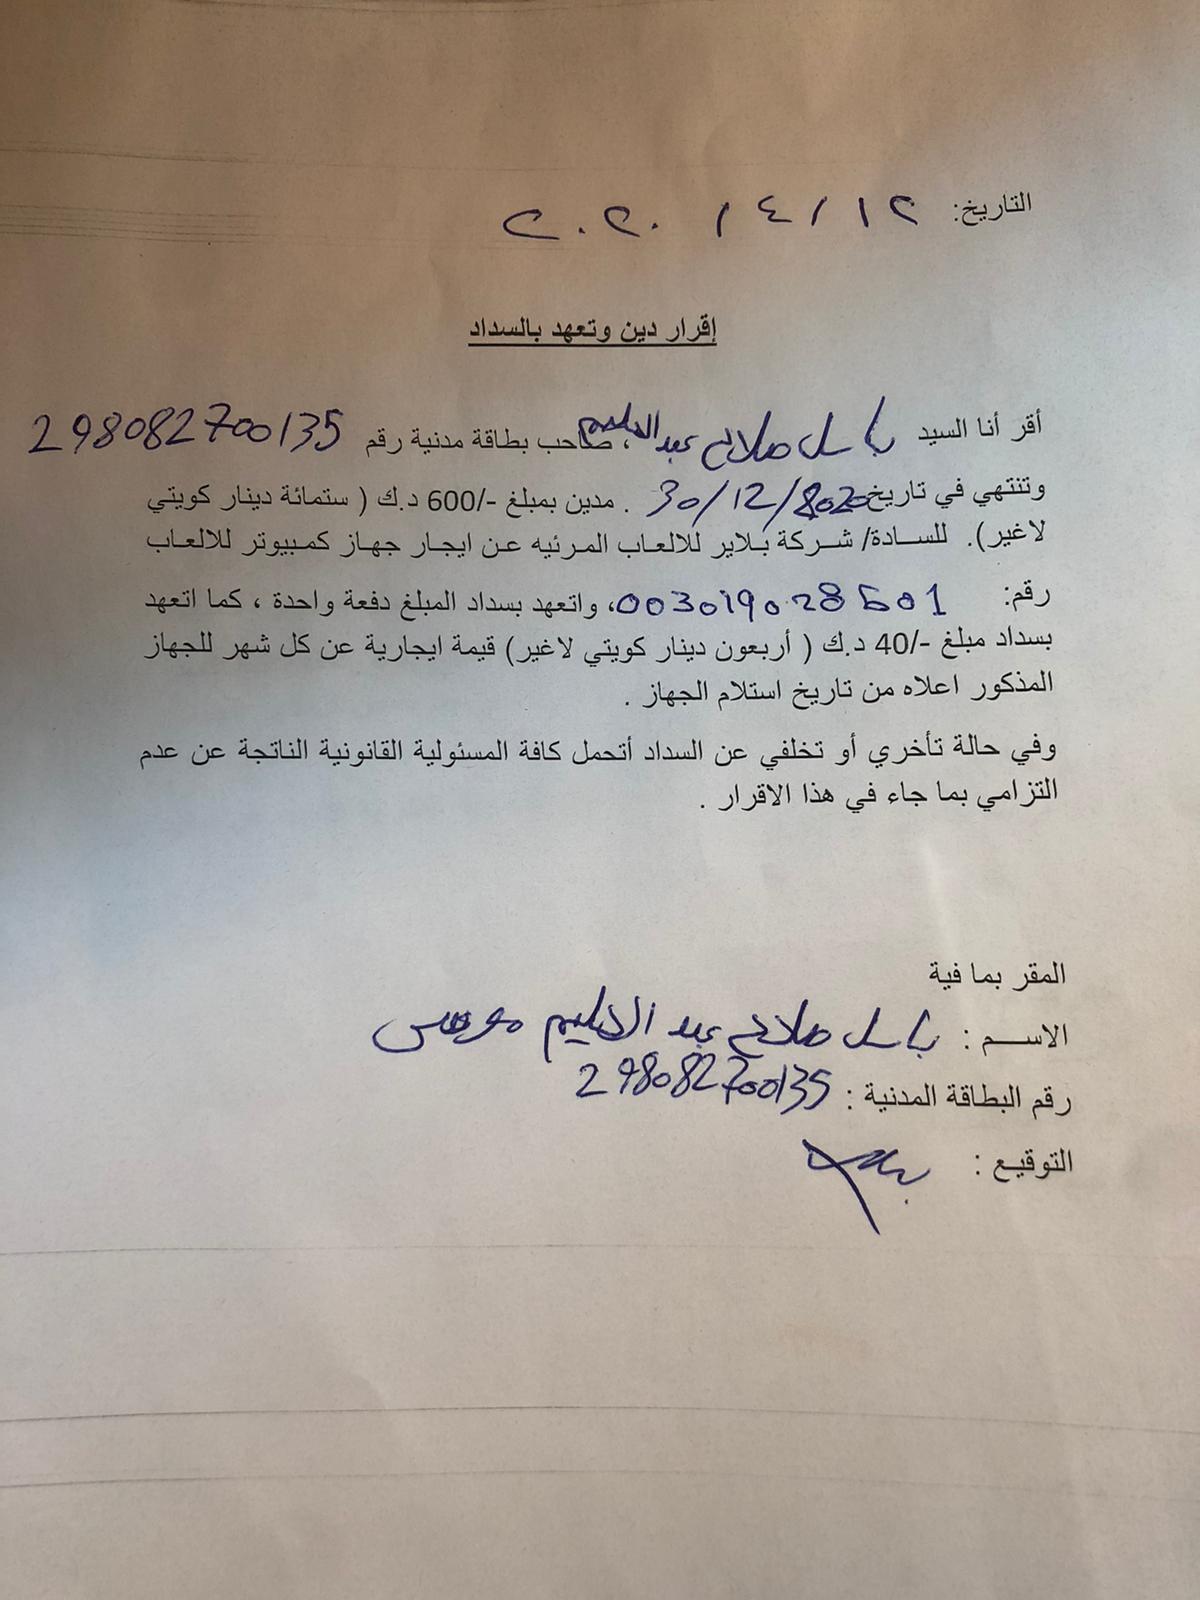 التاريخ: ١٢ / ٤ / ٢٠٢٠
إقرار دين وتعهد بالسداد
أقر أنا السيد باسل صلاح عبدالحليم، صاحب بطاقة مدنية رقم 298082700135
وتنتهي في تاريخ 30/12/2020 . مدين بمبلغ -/600 د.ك ( ستمائة دينار كويتي
لاغير). للســادة/ شــركة بــلاير للالعاب المــرئيه عــن ايجــار جهــاز كمــبيوتر للالعــاب
رقم: 003019028601، واتعهد بسداد المبلغ دفعة واحدة ، كما اتعهد
بسداد مبلغ -/40 د.ك ( أربعون دينار كويتي لاغير) قيمة ايجارية عن كل شهر للجهاز
المذكور اعلاه من تاريخ استلام الجهاز .
وفي حالة تأخري أو تخلفي عن السداد أتحمل كافة المسئولية القانونية الناتجة عن عدم
التزامي بما جاء في هذا الاقرار .
المقر بما فية
الاســـم : باسل صلاح عبد الحليم موسى
رقم البطاقة المدنية : 298082700135
التوقيـع :